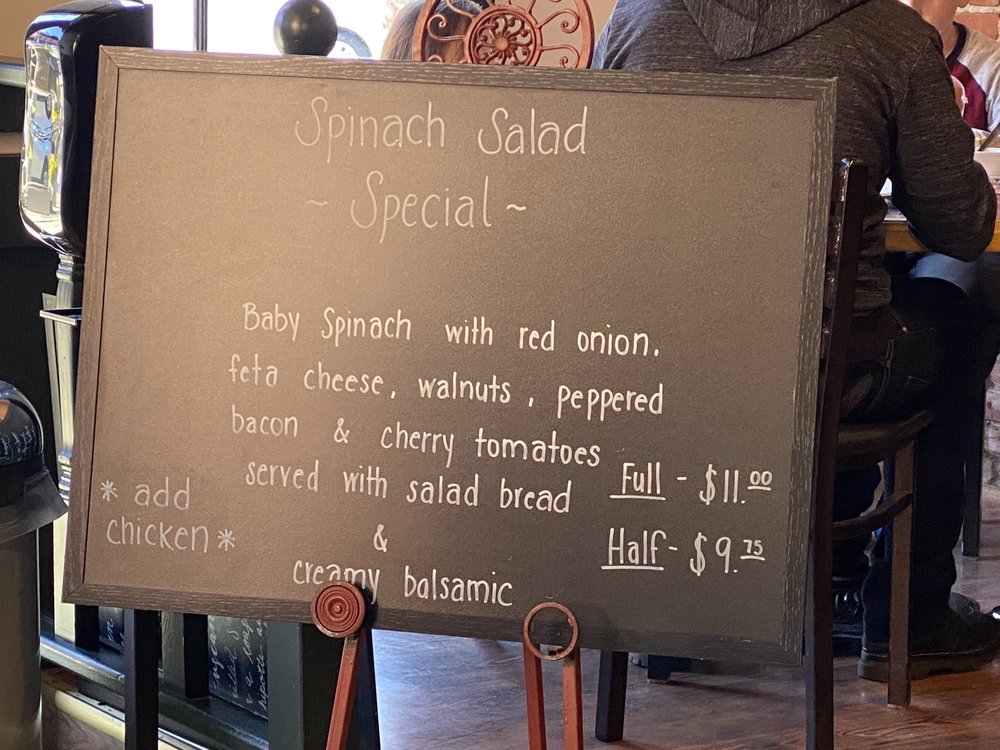 Spinach Salad
~ Special ~
Baby Spinach with red onion,
feta cheese, walnuts, peppered
bacon & cherry tomatoes
served with salad bread
&
creamy balsamic
* add
chicken *
Full - $11.00
Half - $9.75